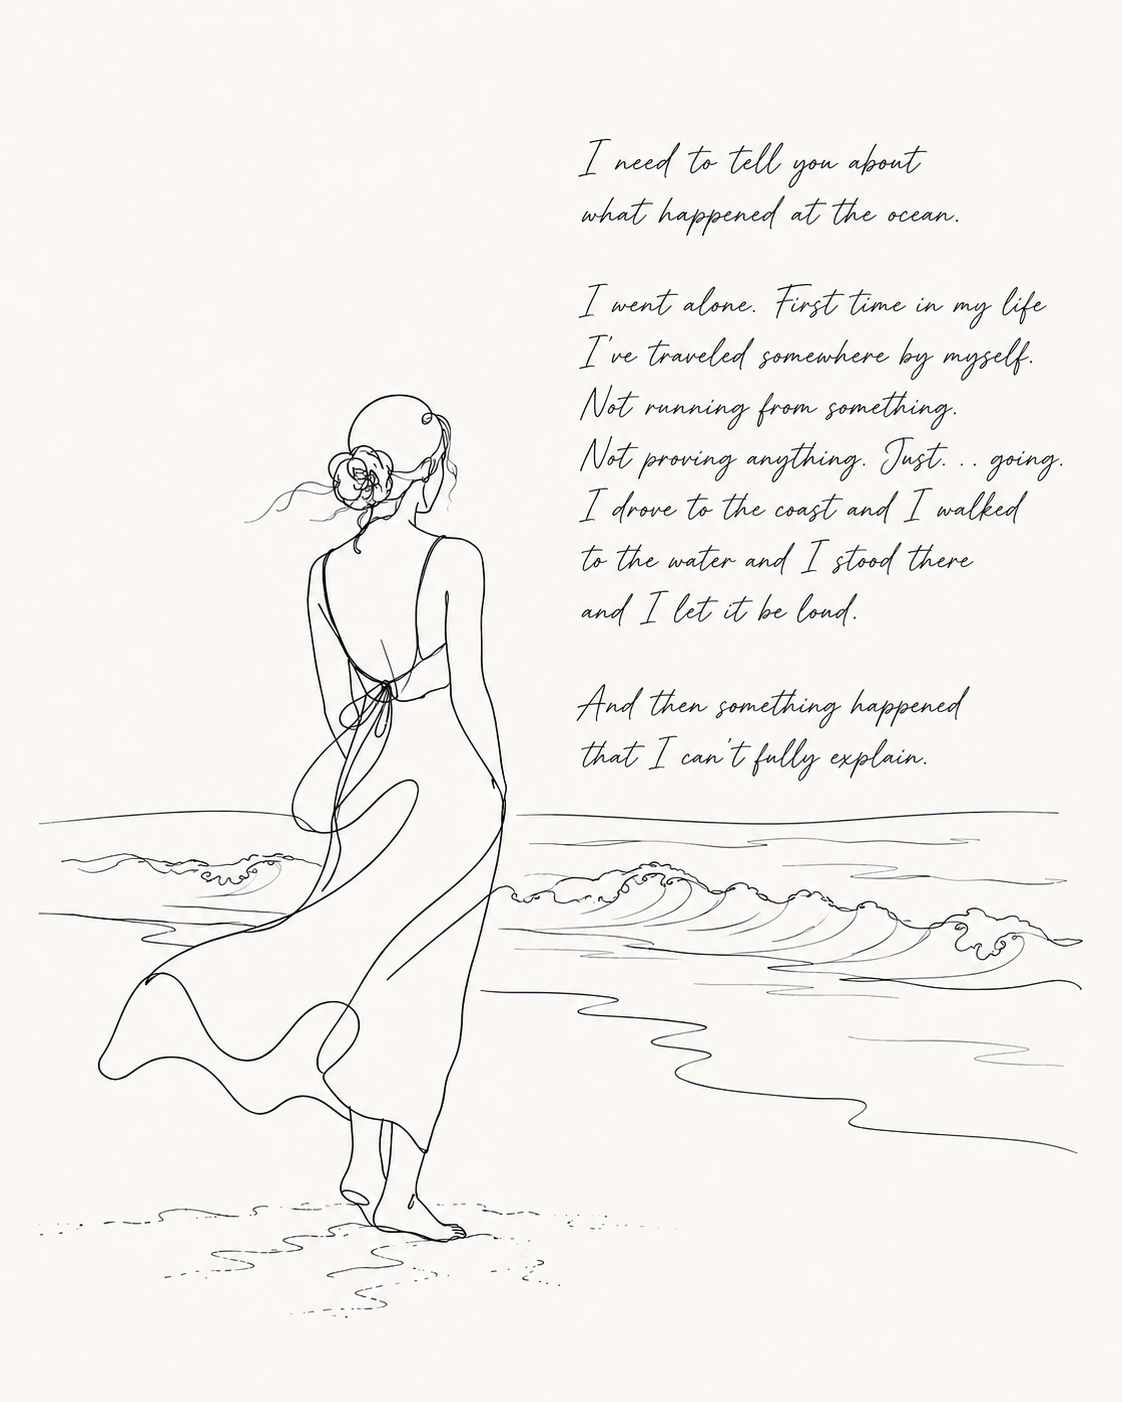 I need to tell you about
what happened at the ocean.
I went alone. First time in my life
I've traveled somewhere by myself.
Not running from something.
Not proving anything. Just. . . going.
I drove to the coast and I walked
to the water and I stood there
and I let it be loud.
And then something happened
that I can't fully explain.